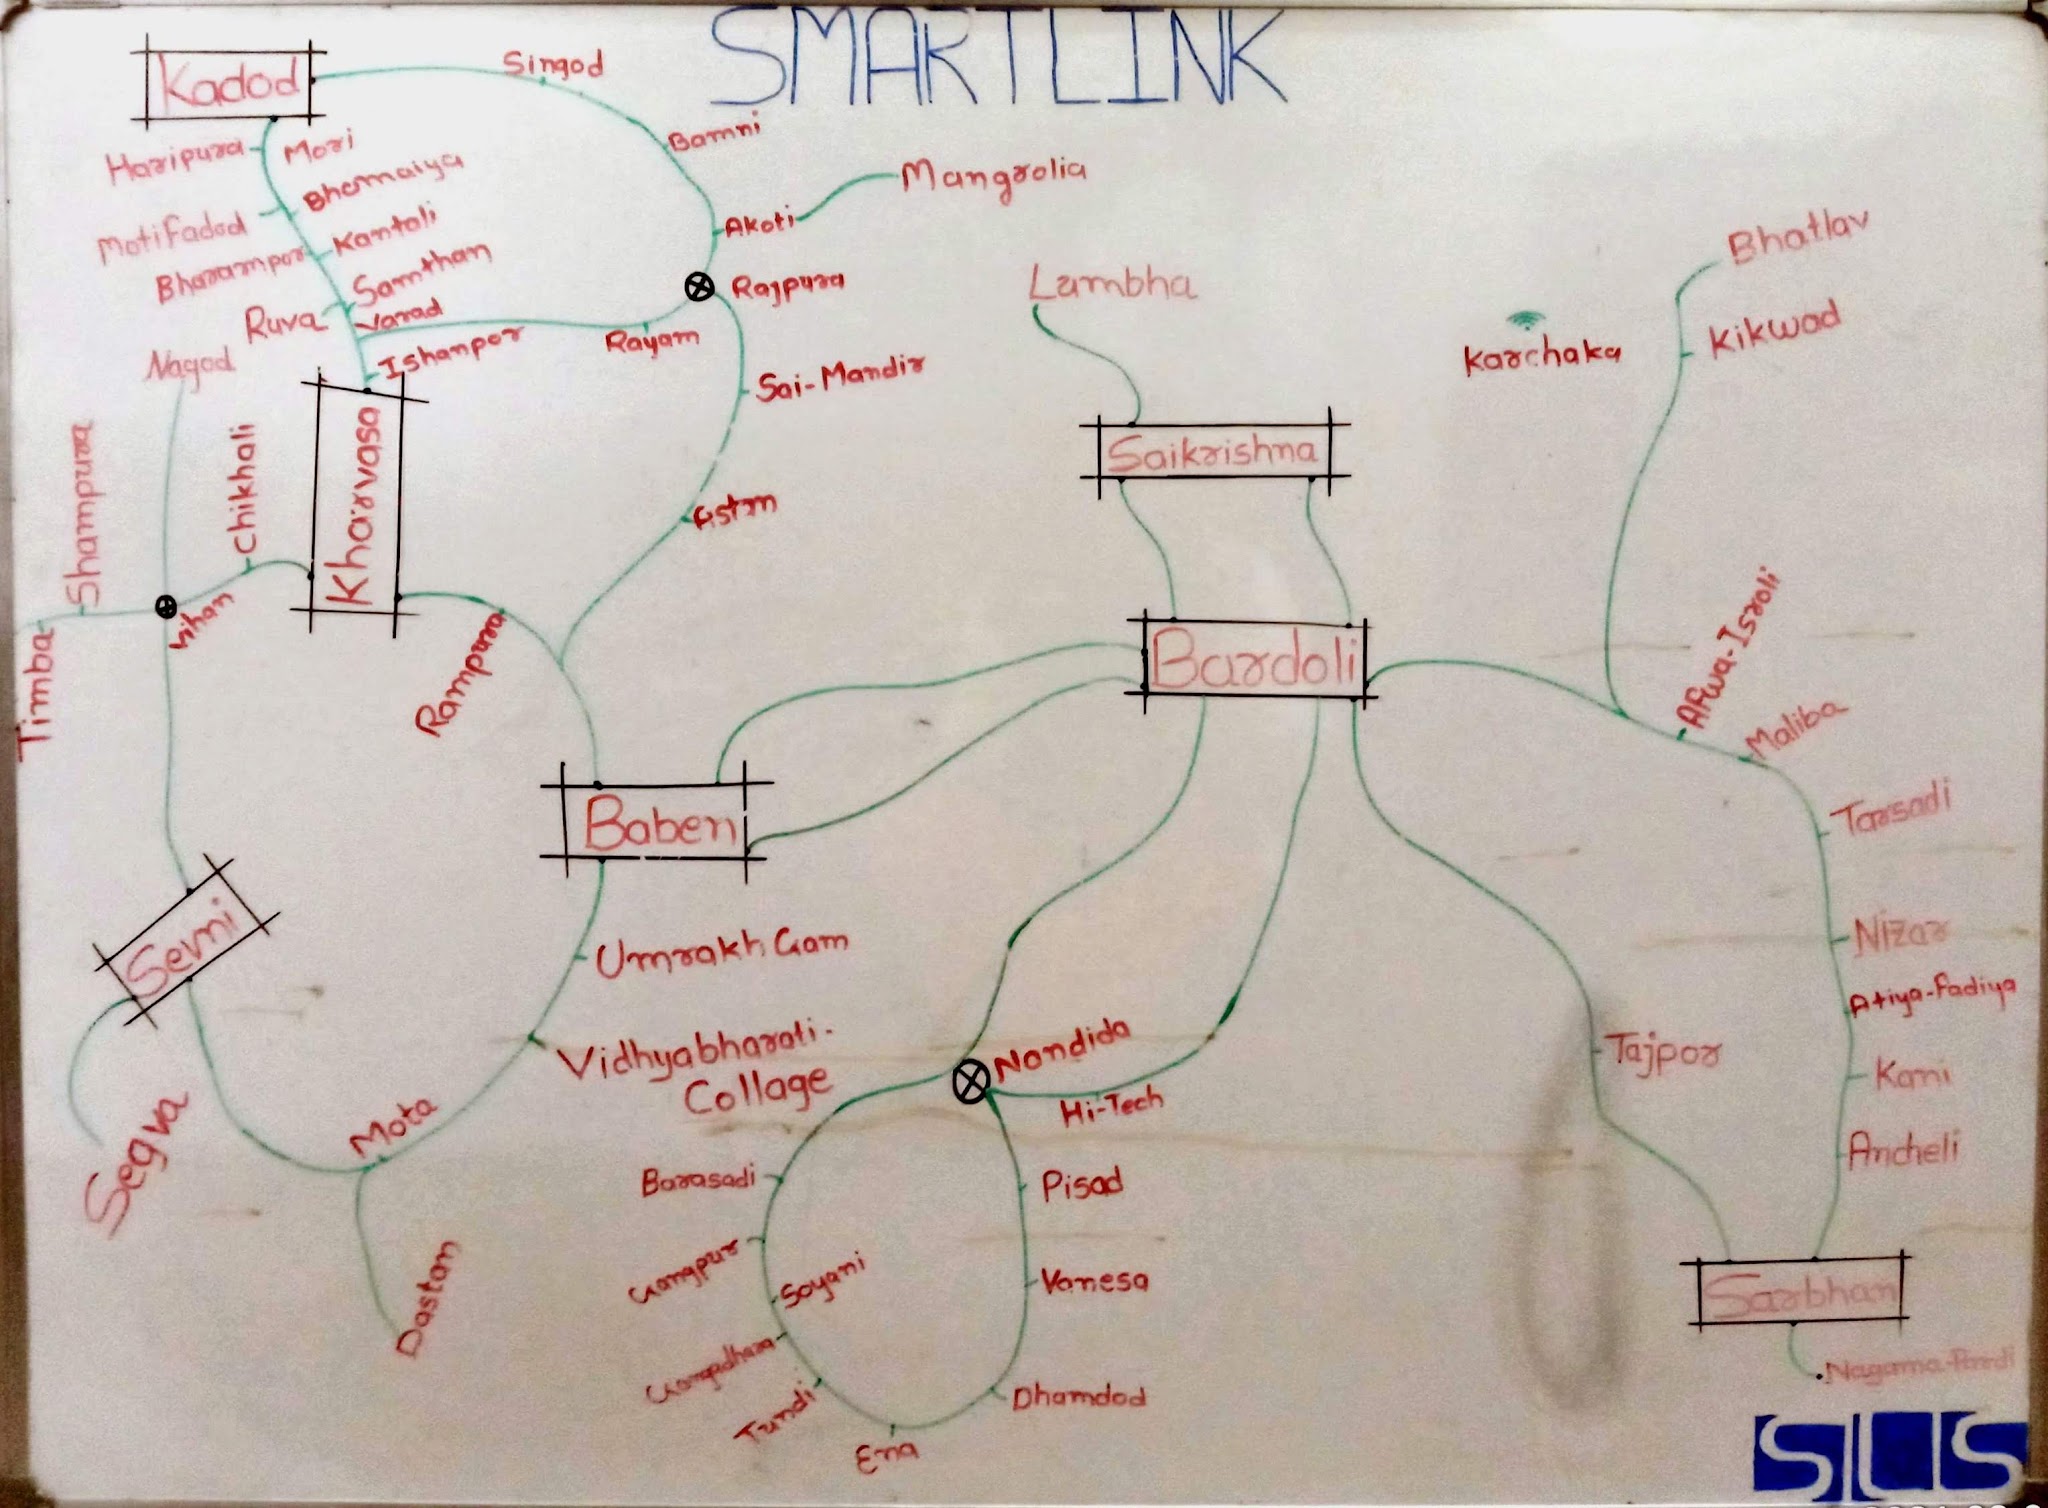 SMARTLINK
Kadod
Singod
Bamni
Haripura
Mori
Bhamaiya
Mangrolia
Motifadod
Kantali
Akoti
Bharampor
Samthan
Rajpura
Ruva
Varad
Ishanpor
Rayam
Sai-Mandir
Lumbha
Bhatlav
Karchaka
Kikwad
Nagod
Shampura
Chikhali
Kharvasa
Astan
Saikrishna
Timba
Vihan
Rampura
Bardoli
Afwa-Isroli
Maliba
Baben
Tarsadi
Sevni
Umrakh Gam
Nizar
Vidhyabharati-
Collage
Nandida
Hi-Tech
Tajpor
Atiya-Fadiya
Kani
Ancheli
Segva
Mota
Barasadi
Pisad
Gangpur
Soyani
Vanesa
Dastan
Gangadhara
Tundi
Ena
Dhamdod
Sarbhan
Nagama-Pardi
SLS